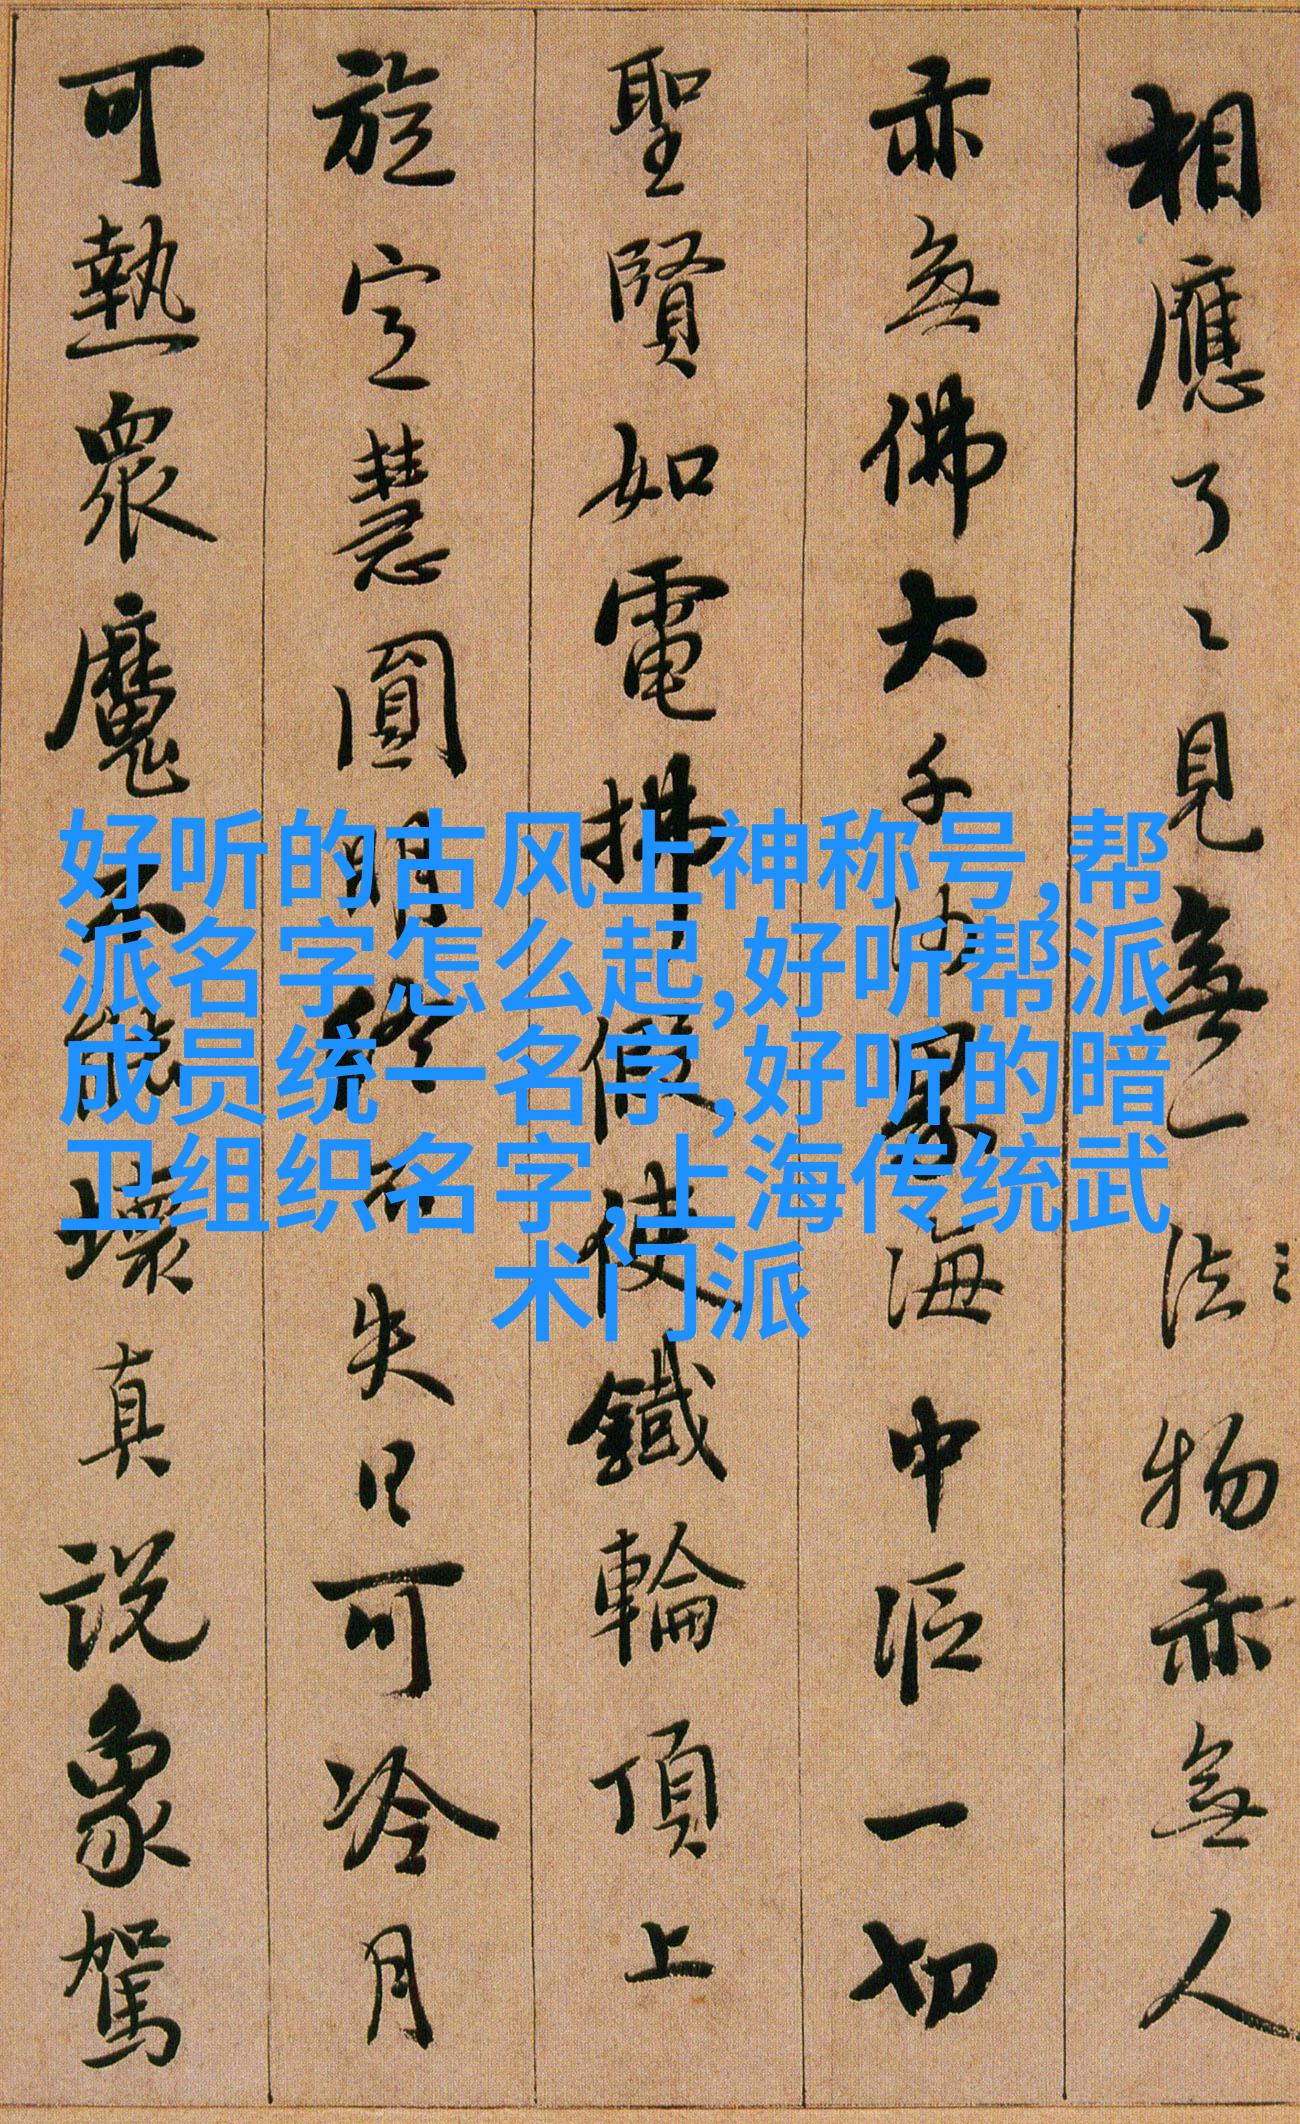 相應了〻見無一法物亦無人
亦無佛大千沙界海中漚一切
聖賢如電拂假使鐵輪頂上
旋定慧圓明終不失日可冷月
可熱眾魔不能壞真說象駕
好听的古风上神称号,帮
派名字怎么起,好听帮派
成员统一名字,好听的暗
卫组织名字,上海传统武
术门派